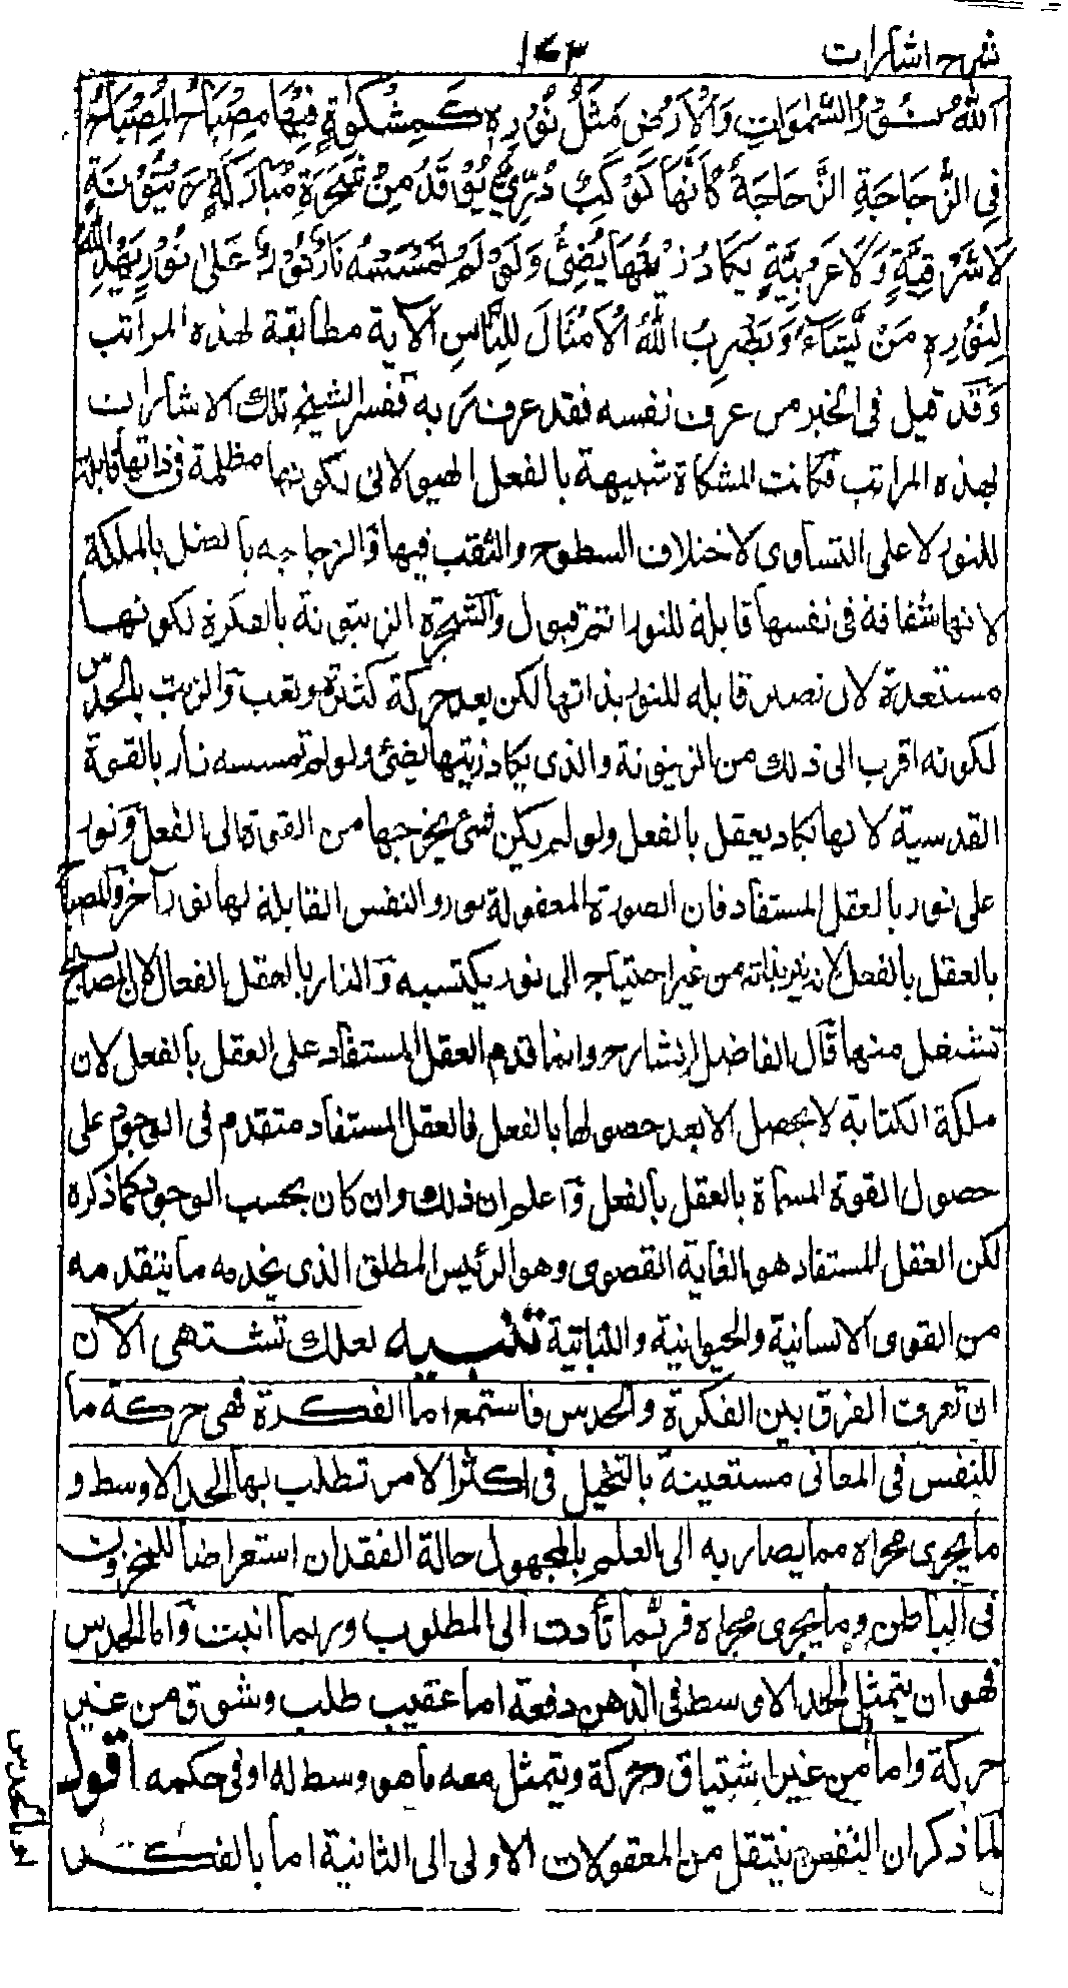 شرح اشارات
١٤٣
اَللّٰهُ نُوْرُ السَّمٰوَاتِ وَالْاَرْضِ مَثَلُ نُوْرِهٖ كَمِشْكٰوةٍ فِيْهَا مِصْبَاحٌ اَلْمِصْبَاحُ
فِى الزُّجَاجَةِ الزُّجَاجَةُ كَاَنَّهَا كَوْكَبٌ دُرِّىٌّ يُوْقَدُ مِنْ شَجَرَةٍ مُبَارَكَةٍ زَيْتُوْنَةٍ
لَا شَرْقِيَّةٍ وَلَا غَرْبِيَّةٍ يَكَادُ زَيْتُهَا يُضِىْٓءُ وَلَوْ لَمْ تَمْسَسْهُ نَارٌ نُوْرٌ عَلٰى نُوْرٍ يَهْدِى اللّٰهُ
لِنُوْرِهٖ مَنْ يَّشَآءُ وَيَضْرِبُ اللّٰهُ الْاَمْثَالَ لِلنَّاسِ الآية مطابقة لهذه المراتب
وقد قيل فى الخبر من عرف نفسه فقد عرف ربه ففسر الشيخ تلك الاشارات
بهذه المراتب فكانت المشكاة شبيهة بالعقل الهيولانى لكونها مظلمة فى ذاتها قابلة
للنور لا على التساوى لاختلاف السطوح والثقب فيها والزجاجه بالعقل بالملكة
لانها شفافة فى نفسها قابلة للنور اتم قبول والشجرة الزيتونة بالفكرة لكونها
مستعدة لان تصير قابله للنور بذاتها لكن بعد حركة كثيرة وتعب والزيت بالحدس
لكونه اقرب الى ذلك من الزيتونة والذى يكاد زيتها يضئ ولو لم تمسسه نار بالقوة
القدسية لانها تكاد يعقل بالفعل ولو لم يكن شئ يخرجها من القوة الى الفعل ونور
على نور بالعقل المستفاد فان الصورة المعقولة نور والنفس القابلة لها نور آخر والمصباح
بالعقل بالفعل لانه نير بذاته من غير احتياج الى نور يكتسبه والنار بالعقل الفعال لان المصابيح
تشتعل منها قال الفاضل الشارح وانما قدم العقل المستفاد على العقل بالفعل لان
ملكة الكتابة لا يحصل الا بعد حصولها بالفعل فالعقل المستفاد متقدم فى الوجود على
حصول القوة المسماة بالعقل بالفعل واعلم ان ذلك وان كان بحسب الوجود كما ذكره
لكن العقل المستفاد هو الغاية القصوى وهو الرئيس المطلق الذى يخدمه ما يتقدمه
من القوى الانسانية والحيوانية والنباتية تنبيه لعلك تشتهى الآن
ان تعرف الفرق بين الفكرة والحدس فاستمع اما الفكرة فهى حركة ما
للنفس فى المعانى مستعينة بالتخيل فى اكثر الامر تطلب بها الحد الاوسط و
ما يجرى مجراه مما يصار به الى العلم بالمجهول حالة الفقدان استعراضا للمخزون
فى الباطن وما يجرى مجراه فربما تأدت الى المطلوب وربما انبت واما الحدس
فهو ان يتمثل الحد الاوسط فى الذهن دفعة اما عقيب طلب وشوق من غير
حركة واما من غير اشتياق وحركة ويتمثل معه ما هو وسط له او فى حكمه اقول
لما ذكر ان النفس ينتقل من المعقولات الاولى الى الثانية اما بالفكر